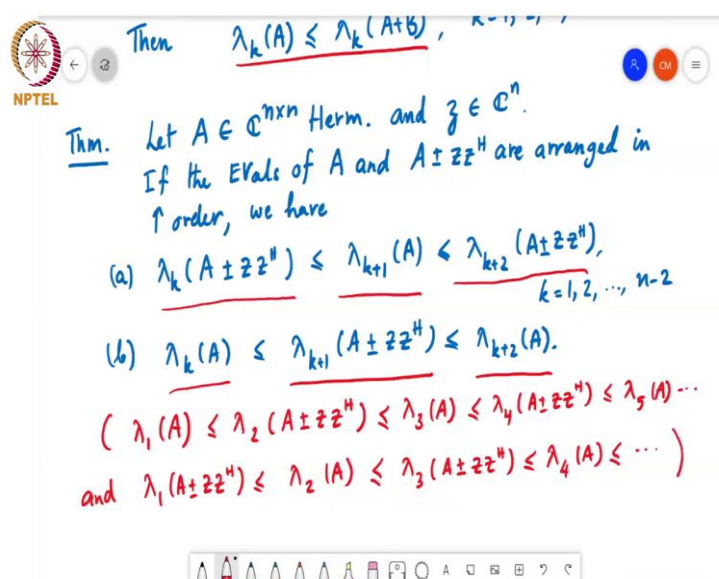 Then λₖ(A) ≤ λₖ(A+B),
NPTEL
CM
Thm. Let A ∈ ℂⁿˣⁿ Herm. and z ∈ ℂⁿ.
If the Evals of A and A ± zzᴴ are arranged in
↑ order, we have
(a) λₖ(A ± zzᴴ) ≤ λₖ₊₁(A) ≤ λₖ₊₂(A ± zzᴴ),
k = 1, 2, ..., n-2
(b) λₖ(A) ≤ λₖ₊₁(A ± zzᴴ) ≤ λₖ₊₂(A).
( λ₁(A) ≤ λ₂(A ± zzᴴ) ≤ λ₃(A) ≤ λ₄(A ± zzᴴ) ≤ λ₅(A) ...
and λ₁(A ± zzᴴ) ≤ λ₂(A) ≤ λ₃(A ± zzᴴ) ≤ λ₄(A) ≤ ... )